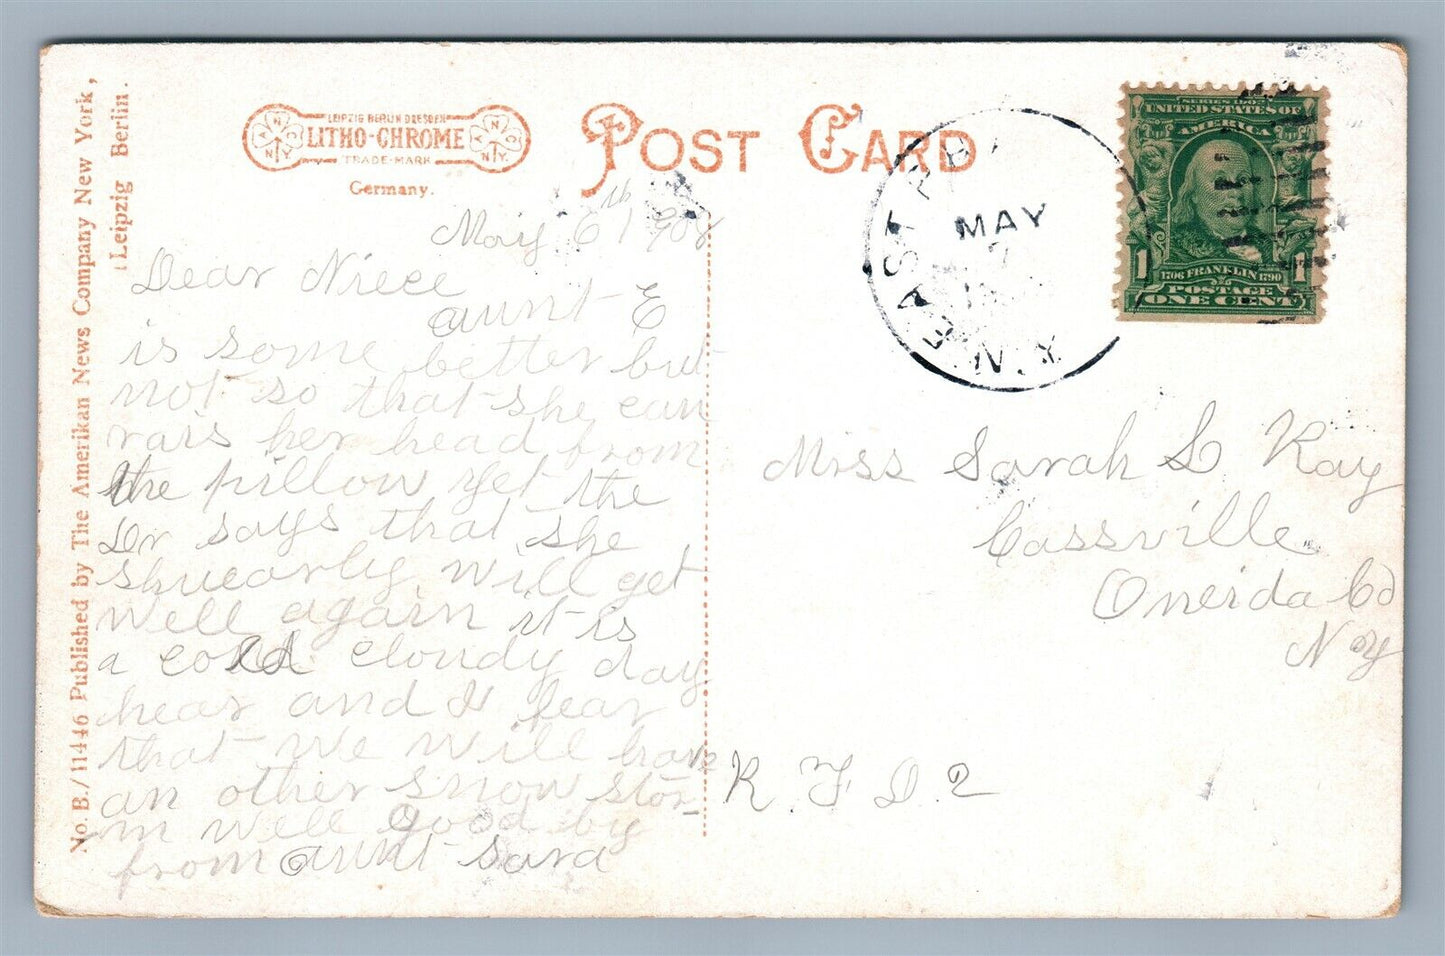 No. B./11446 Published by The Amerikan News Company New York,
(Leipzig Berlin.
LEIPZIG BERLIN DRESDEN
LITHO-CHROME
TRADE-MARK
ANC
NY
ANC
NY
Germany.
POST CARD
EAST
MAY
7
N.Y.
SERIES 1902
UNITED STATES OF
AMERICA
1 1
1706 FRANKLIN 1790
POSTAGE
ONE CENT
May 6th 1908
Dear Niece
aunt E
is some better but
not so that she can
rais her head from
the pillow yet the
Dr says that she
shuearly will get
well again it is
a cold cloudy day
hear and I fear
that we will have
an other snow stor
m well good by
from aunt Sara
Miss Sarah L Ray
Cassville
Oneida Co
N y
R. F D. 2